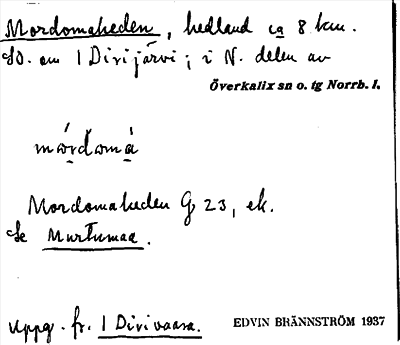 Mordomaheden, hedland ca 8 km.
SO. om 1 Dirijärvi; i N. delen av
Överkalix sn o. tg Norrb. l.
mórdomá
Mordomaheden G 23, ek.
Se Murtumaa.
Uppg. fr. 1 Dirivaara.
EDVIN BRÄNNSTRÖM 1937